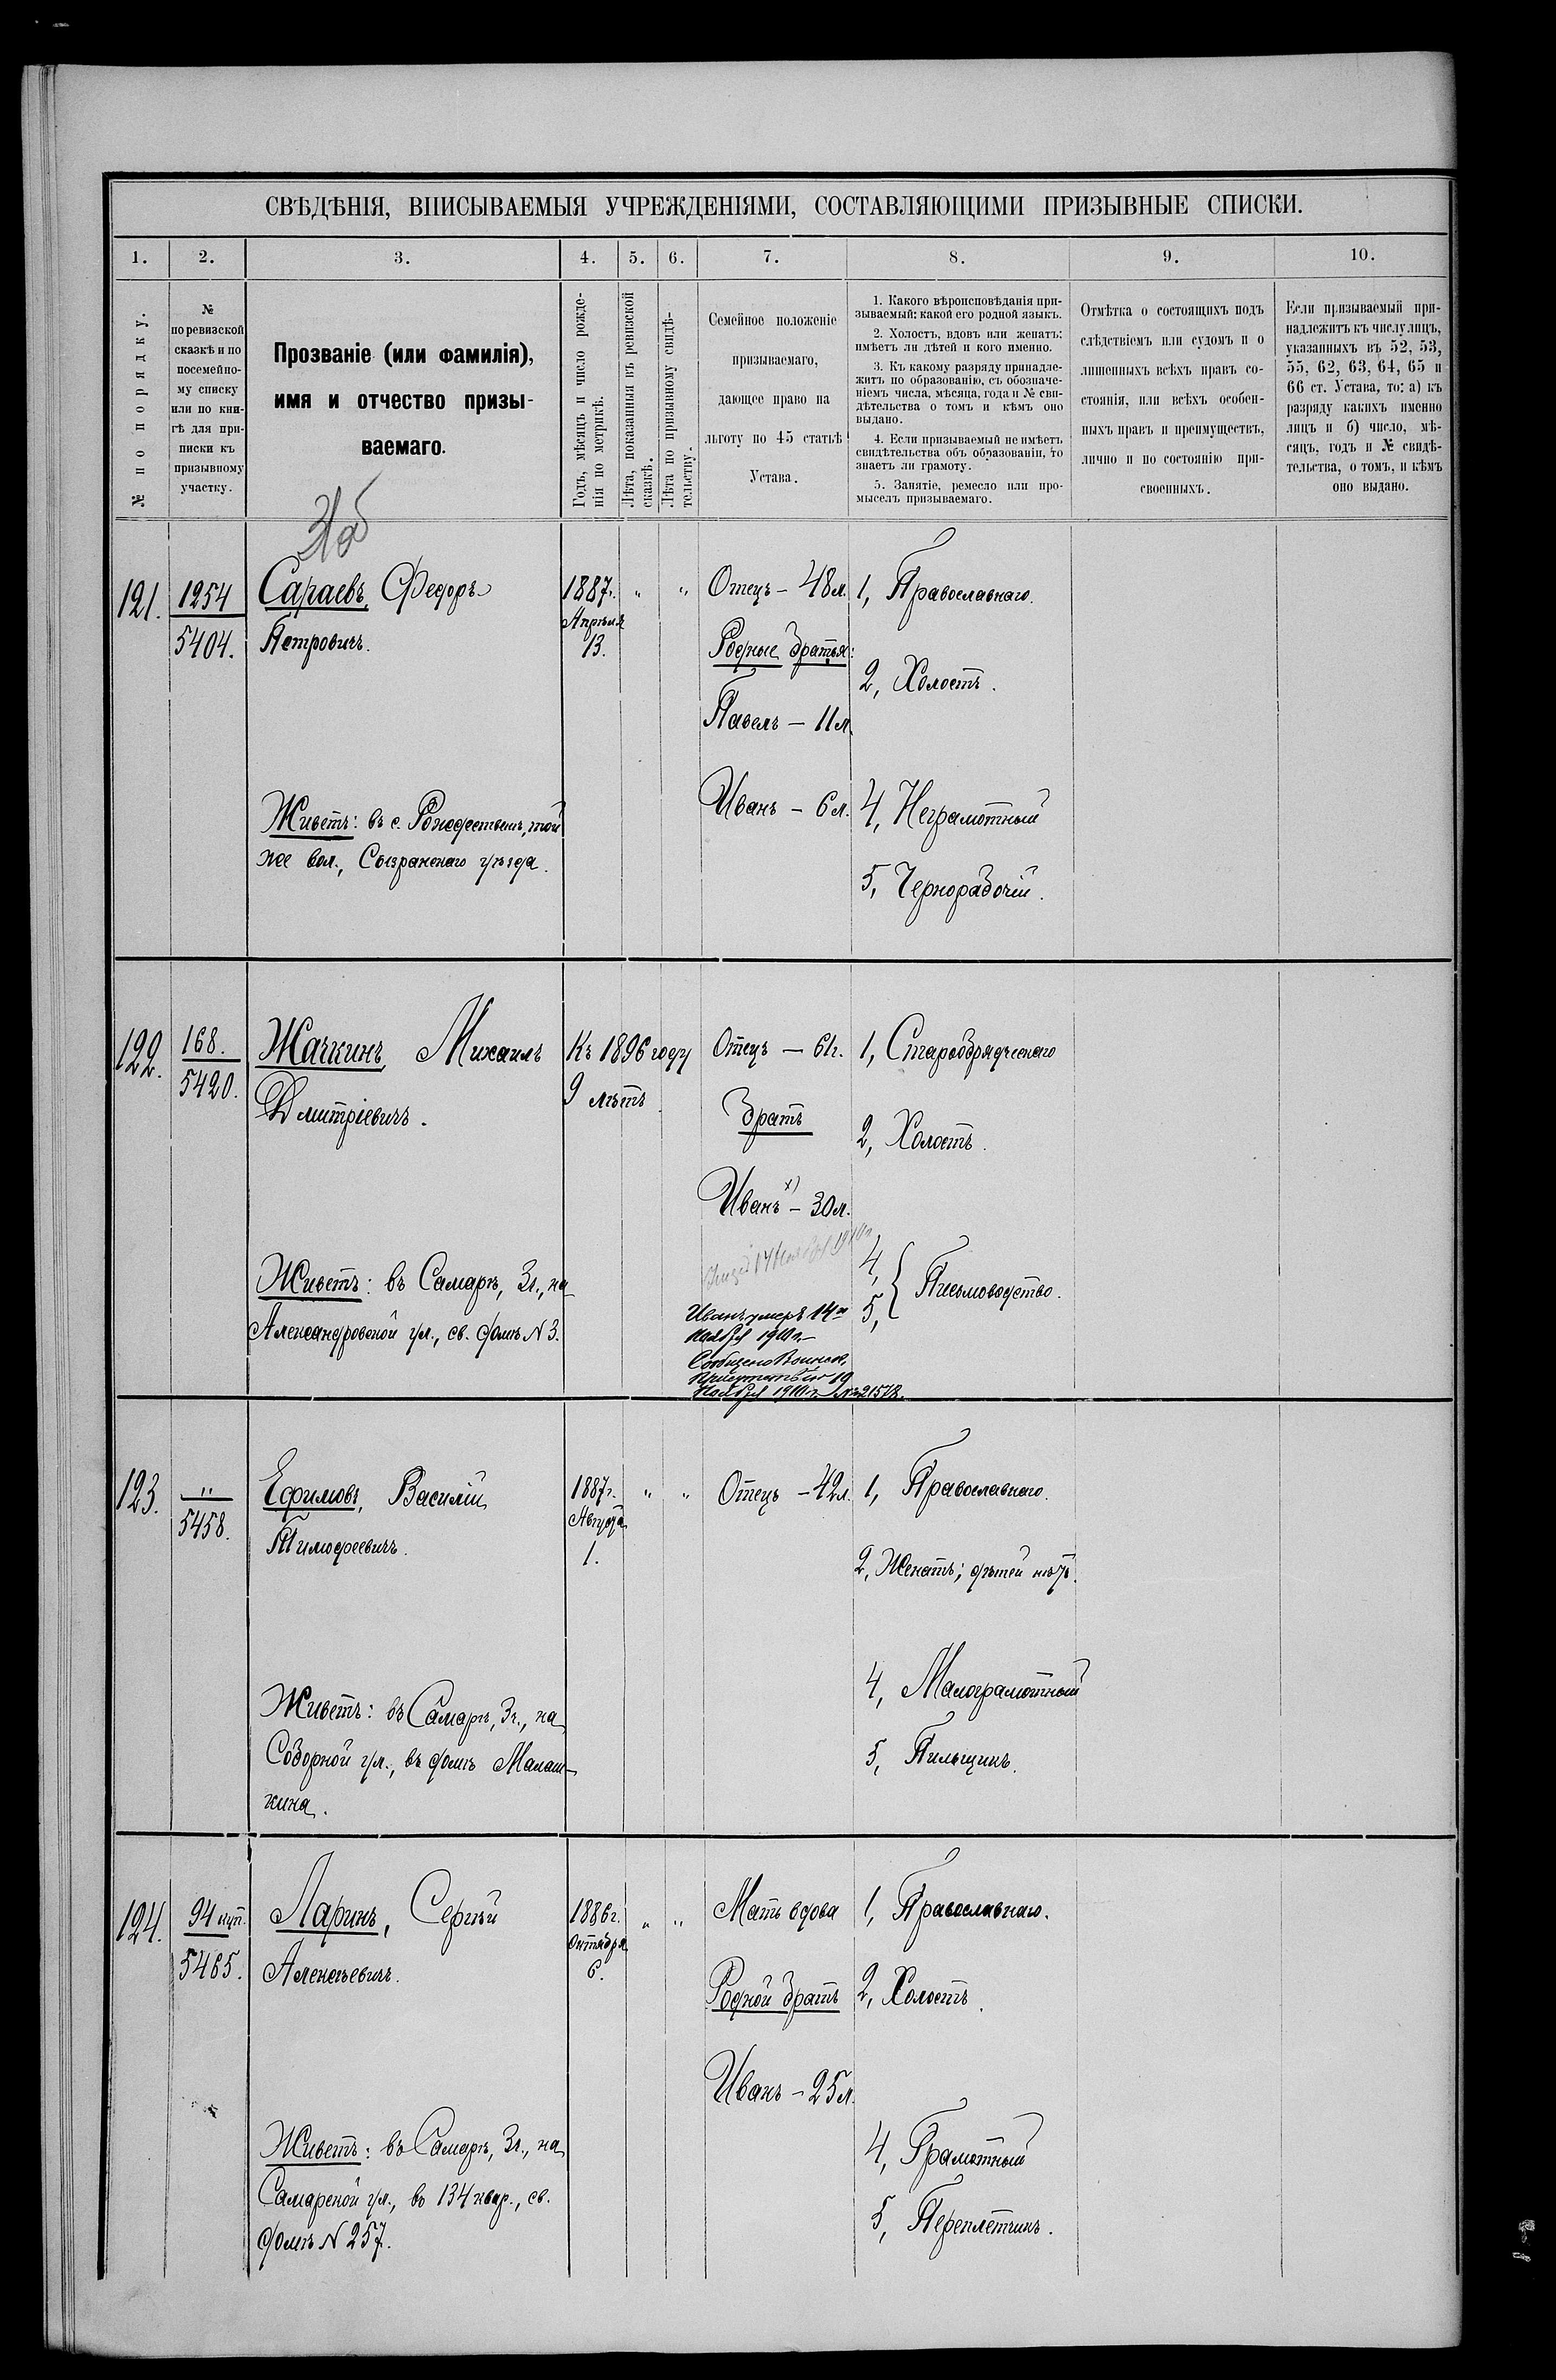 СВѢДѢНІЯ, ВПИСЫВАЕМЫЯ УЧРЕЖДЕНІЯМИ, СОСТАВЛЯЮЩИМИ ПРИЗЫВНЫЕ СПИСКИ.
1. 2. 3. 4. 5. 6. 7. 8. 9. 10.
№ по порядку.
№
по ревизской
сказкѣ и по
посемейно-
му списку
или по кни-
гѣ для при-
писки къ
призывному
участку.
Прозваніе (или фамилія),
имя и отчество призы-
ваемаго.
Годъ, мѣсяцъ и число рожде-
нія по метрикѣ.
Лѣта, показанныя въ ревизской
сказкѣ.
Лѣта по призывному свидѣ-
тельству.
Семейное положеніе
призываемаго,
дающее право на
льготу по 45 статьѣ
Устава.
1. Какого вѣроисповѣданія при-
зываемый: какой его родной языкъ.
2. Холостъ, вдовъ или женатъ:
имѣетъ ли дѣтей и кого именно.
3. Къ какому разряду принадле-
житъ по образованію, съ обозначе-
ніемъ числа, мѣсяца, года и № сви-
дѣтельства о томъ и кѣмъ оно
выдано.
4. Если призываемый не имѣетъ
свидѣтельства объ образованіи, то
знаетъ ли грамоту.
5. Занятіе, ремесло или про-
мыселъ призываемаго.
Отмѣтка о состоящихъ подъ
слѣдствіемъ или судомъ и о
лишенныхъ всѣхъ правъ со-
стоянія, или всѣхъ особен-
ныхъ правъ и преимуществъ,
лично и по состоянію при-
своенныхъ.
Если призываемый при-
надлежитъ къ числу лицъ,
указанныхъ въ 52, 53,
55, 62, 63, 64, 65 и
66 ст. Устава, то: а) къ
разряду какихъ именно
лицъ и б) число, мѣ-
сяцъ, годъ и № свидѣ-
тельства, о томъ, и кѣмъ
оно выдано.
121.
1254
5404.
Сараевъ, Федоръ
Петровичъ.
Живетъ: въ с. Рождественѣ, той
же вол., Сызранскаго уѣзда.
1887г.
Апрѣля
13.
" "
Отецъ – 48л.
Родные братья:
Павелъ – 11л.
Иванъ – 6л.
1, Православнаго.
2, Холостъ.
4, Неграмотный
5, Чернорабочій.
122.
168.
5420.
Жачкинъ, Михаилъ
Дмитріевичъ.
Живетъ: въ Самарѣ, 3ч., на
Александровской ул., св. домъ N 3.
Къ 1896 году
9 лѣтъ
Отецъ – 61г.
Братъ
Иванъ х) – 30л.
Иванъ умеръ 14го
Ноября 1910г.–
Сообщено Воинск.
Присутствію 19
Ноября 1910г. №21578.
1, Старообрядческаго
2, Холостъ.
4,
5, { Письмоводство.
123.
"
5458.
Ефимовъ, Василій
Тимофеевичъ.
Живетъ: въ Самарѣ, 3ч., на
Соборной ул., въ домѣ Малаш-
кина.
1887г.
Августа
1.
" "
Отецъ – 42л.
1, Православнаго.
2, Женатъ; дѣтей нѣтъ.
4, Малограмотный
5, Пильщикъ.
124.
94 куп.
5465.
Ларинъ, Сергѣй
Алексѣевичъ.
Живетъ: въ Самарѣ, 3ч., на
Самарской ул., въ 134 квар., св.
домъ N 257.
1886г.
Октября
6.
" "
Мать вдова
Родной братъ
Иванъ – 25л.
1, Православнаго.
2, Холостъ.
4, Грамотный
5, Переплетчикъ.